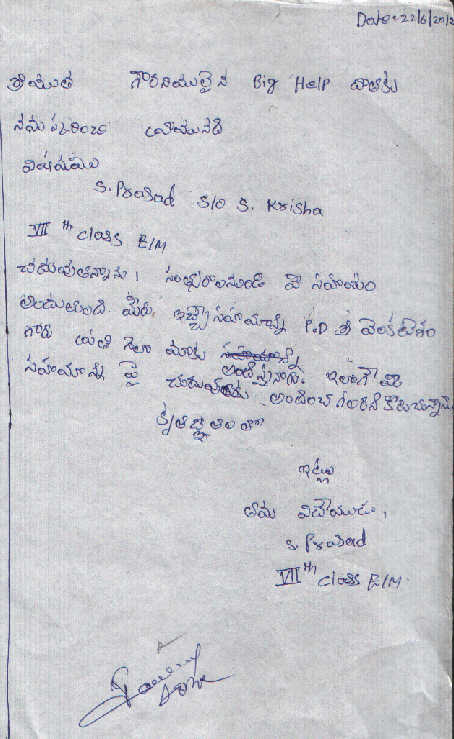 Date:- 22/6/20
శ్రీయుత గౌరవనీయులైన Big Help దాతకు
నమస్కరించి వ్రాయునది
విషయము
S. Prasad S/o S. Krisha
VII th class E/M
చదువుతున్నాను. సంవత్సరాలనుండి మీ సహాయం
అందుతుంది. మీరు ఇచ్చే సహాయాన్ని P.D శ్రీ వెంకటేశం
గారు ప్రతి నెలా మాకు అందిస్తున్నారు. ఇలాగే మీ
సహాయాన్ని పై చదువులకు అందించగలరని కోరుచున్నాను
కృతజ్ఞతలతో
ఇట్లు
తమ విధేయుడు,
S. Prasad
VII th class E/M